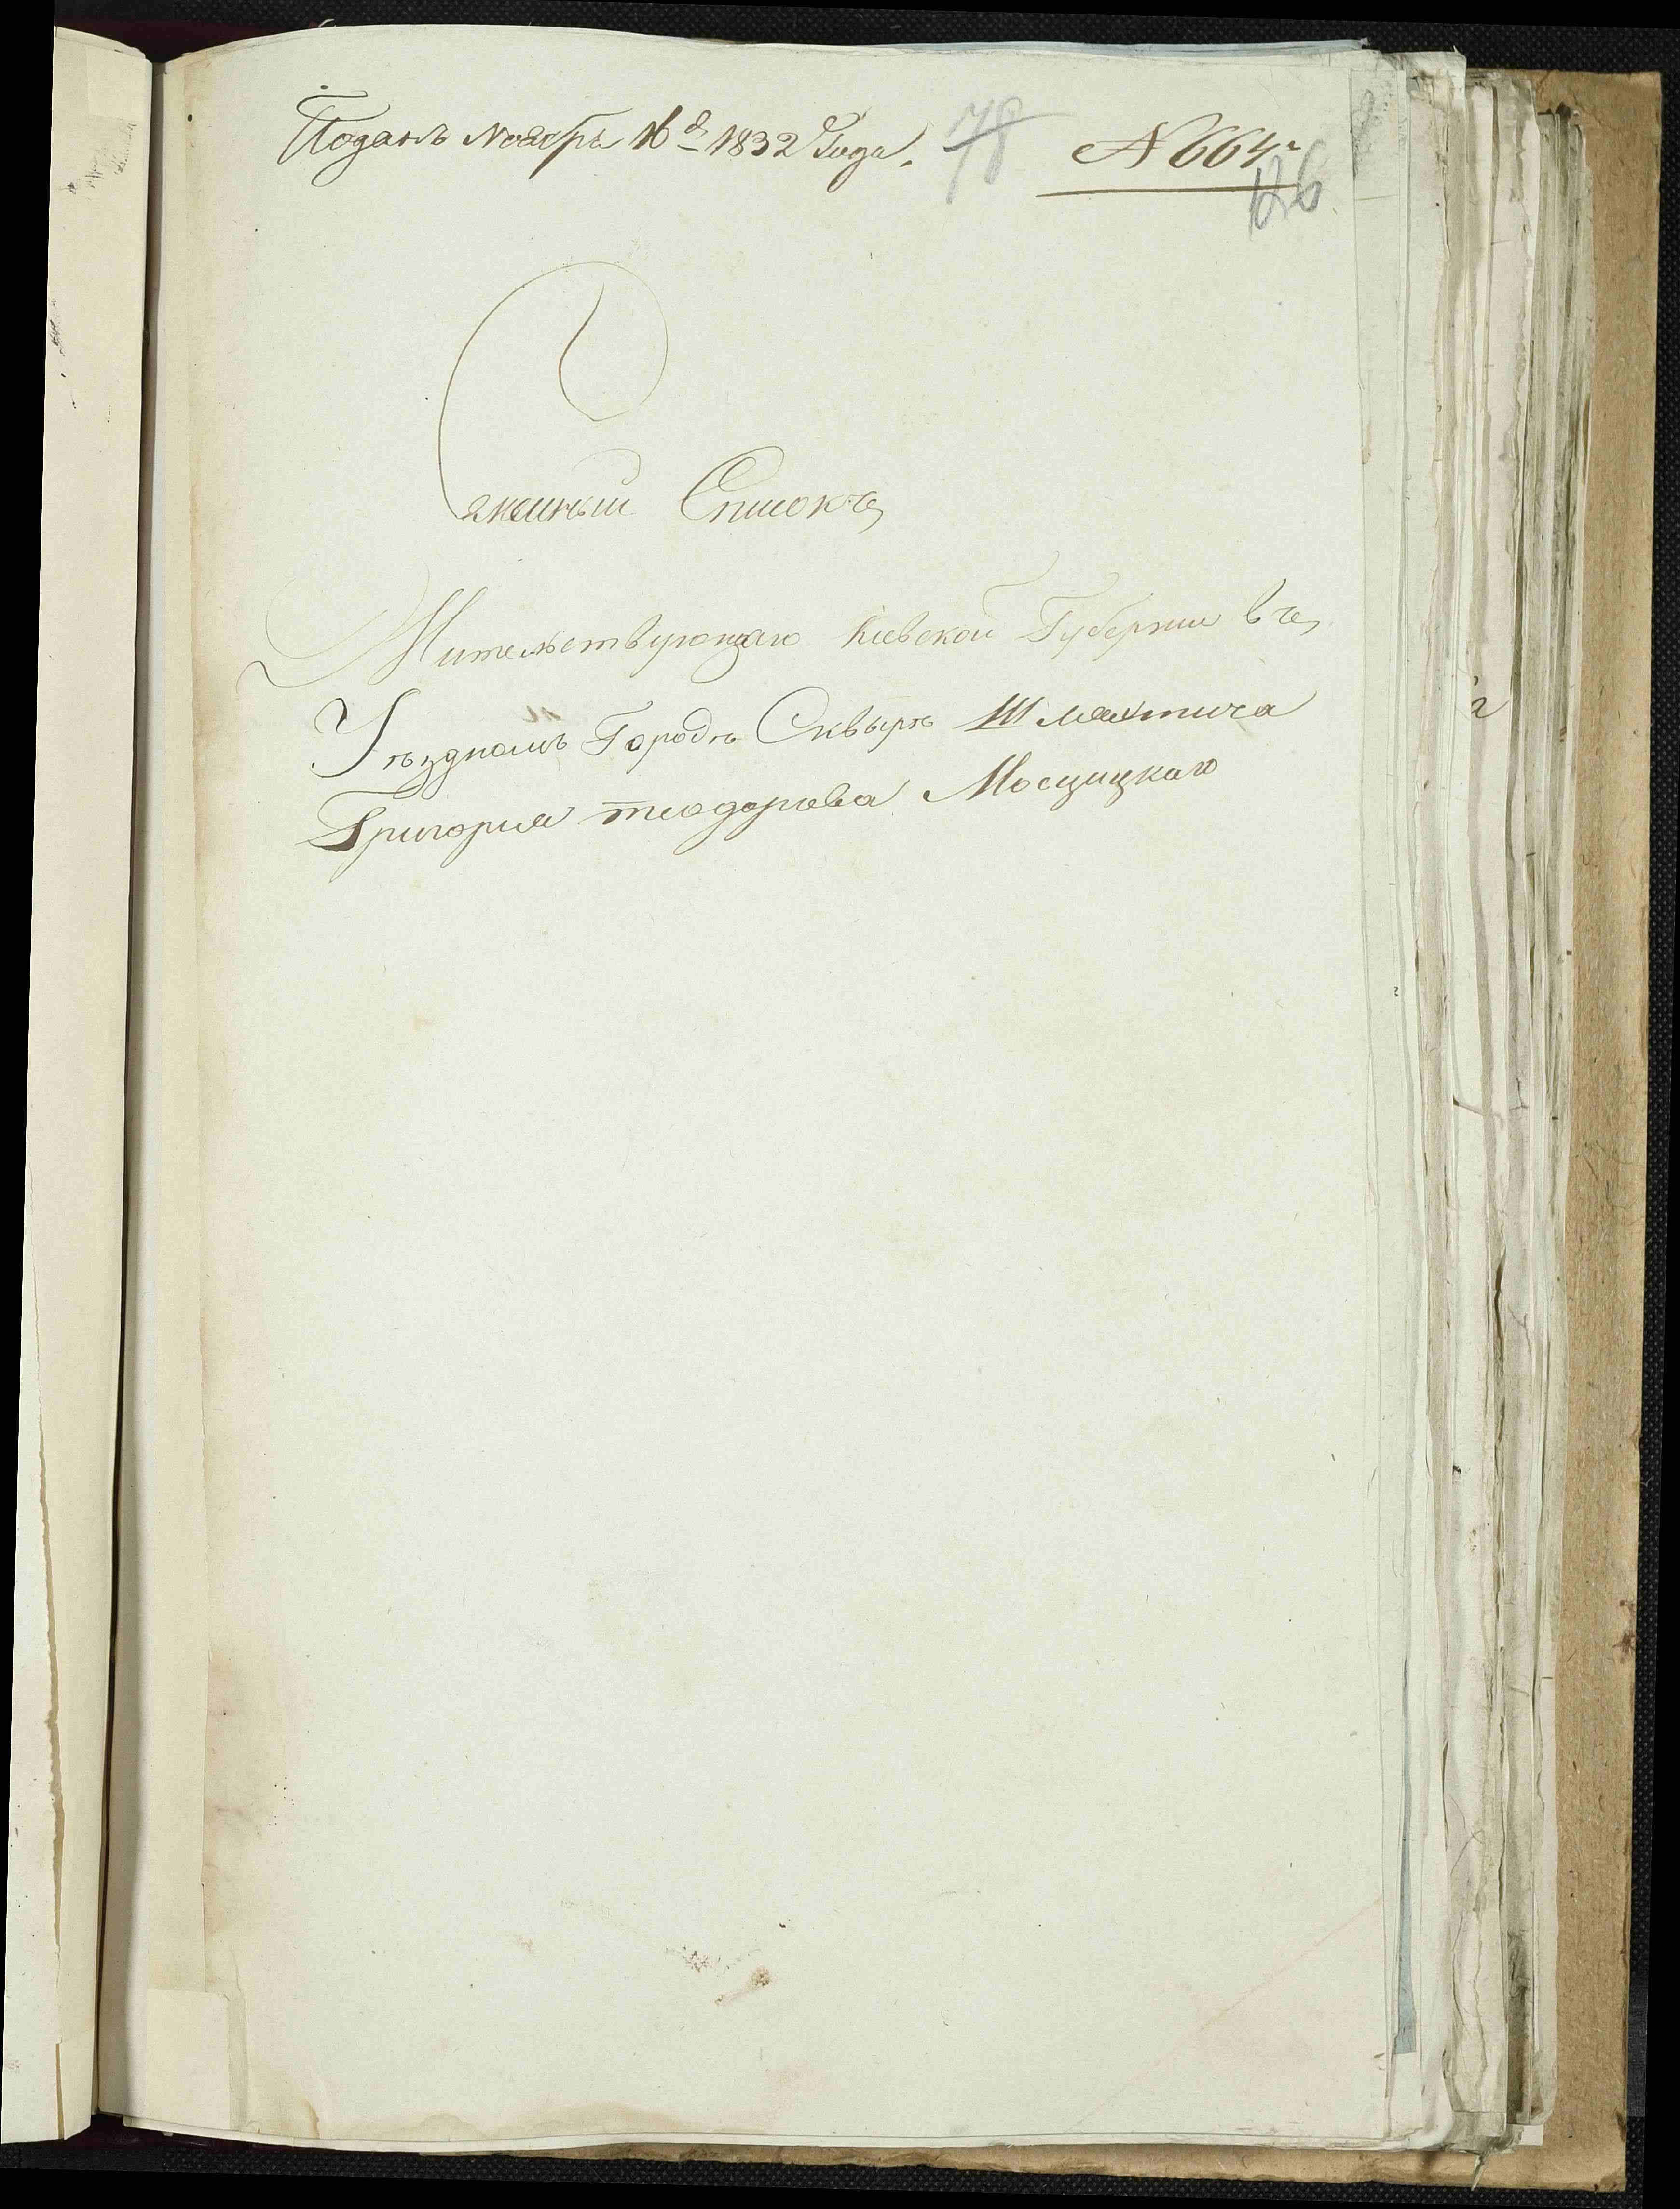 Поданъ Ноября 16 д 1832 Года. 78 № 664
126
Сямейный Списокъ
Жительствующаго Кіевской Губерніи въ
Уѣздномъ Городѣ Сквырѣ Шляхтича
Григорія теодорова Мосцицкаго